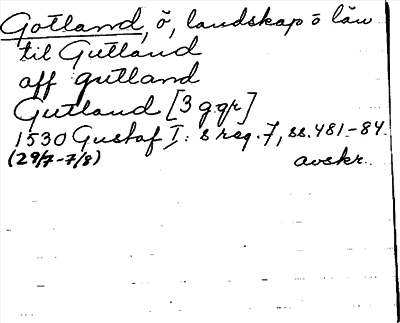 Gotland, ö, landskap o län
til Gutland
aff gutland
Gutland [3 ggr]
1530 Gustaf I:s reg. 7, ss. 481-84.
(29/7-7/8) avskr.